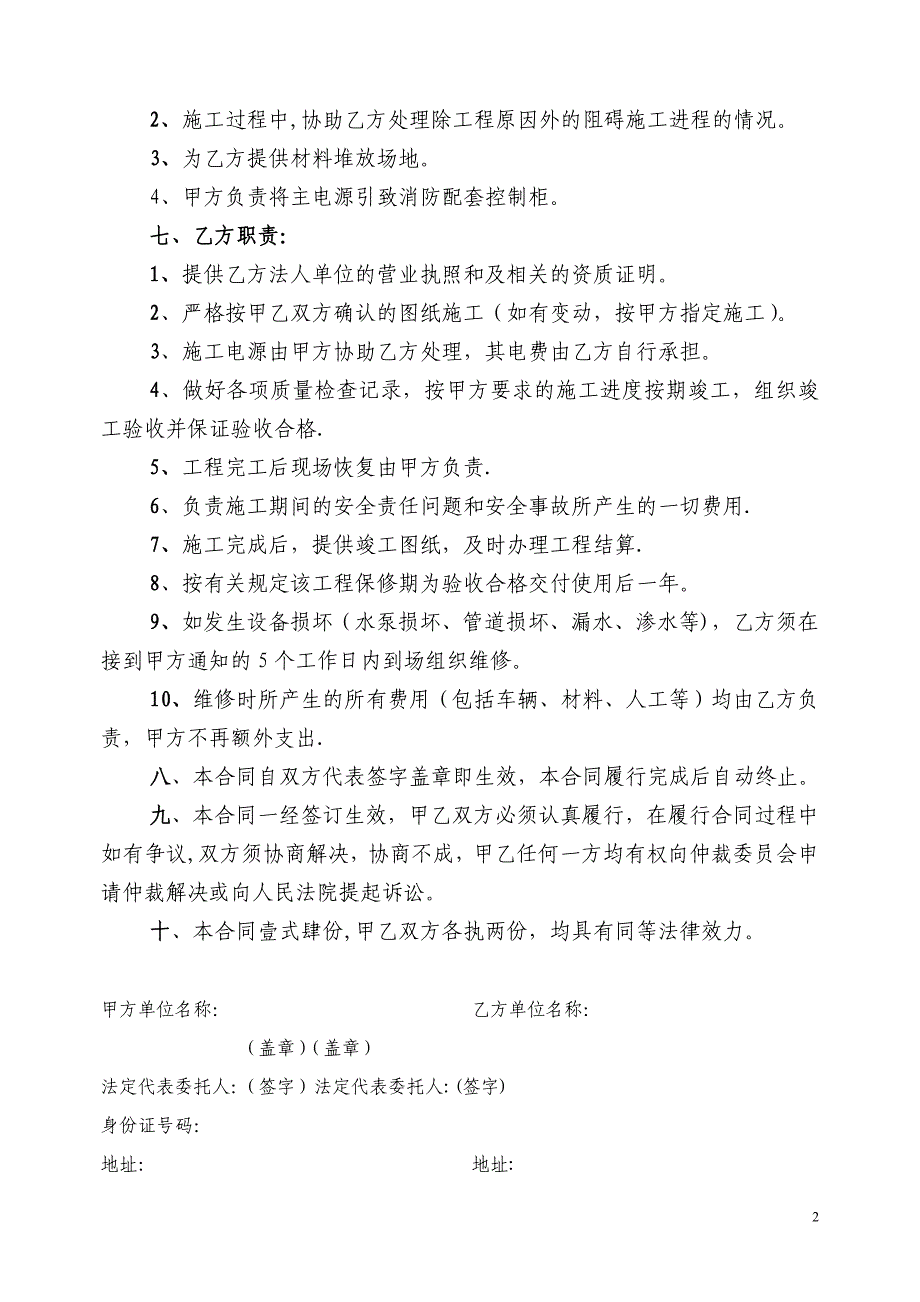 2、施工过程中,协助乙方处理除工程原因外的阻碍施工进程的情况。
3、为乙方提供材料堆放场地。
4、甲方负责将主电源引致消防配套控制柜。
七、乙方职责:
1、提供乙方法人单位的营业执照和及相关的资质证明。
2、严格按甲乙双方确认的图纸施工(如有变动，按甲方指定施工)。
3、施工电源由甲方协助乙方处理，其电费由乙方自行承担。
4、做好各项质量检查记录，按甲方要求的施工进度按期竣工，组织竣
工验收并保证验收合格.
5、工程完工后现场恢复由甲方负责.
6、负责施工期间的安全责任问题和安全事故所产生的一切费用.
7、施工完成后，提供竣工图纸，及时办理工程结算.
8、按有关规定该工程保修期为验收合格交付使用后一年。
9、如发生设备损坏(水泵损坏、管道损坏、漏水、渗水等)，乙方须在
接到甲方通知的 5 个工作日内到场组织维修。
10、维修时所产生的所有费用(包括车辆、材料、人工等)均由乙方负
责，甲方不再额外支出.
八、本合同自双方代表签字盖章即生效，本合同履行完成后自动终止。
九、本合同一经签订生效，甲乙双方必须认真履行，在履行合同过程中
如有争议,双方须协商解决，协商不成，甲乙任何一方均有权向仲裁委员会申
请仲裁解决或向人民法院提起诉讼。
十、本合同壹式肆份,甲乙双方各执两份，均具有同等法律效力。
甲方单位名称: 乙方单位名称:
(盖章)(盖章)
法定代表委托人:(签字)法定代表委托人:(签字)
身份证号码:
地址: 地址:
2